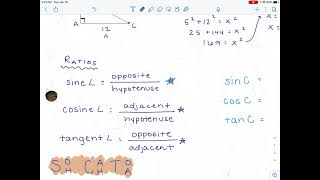 A 12 C
A
5² + 12² = x²
25 + 144 = x²
169 = x²
RATIOS
sine L = opposite / hypotenuse
cosine L = adjacent / hypotenuse
tangent L = opposite / adjacent
sin C =
cos C =
tan C =
S O/H C A/H T O/A